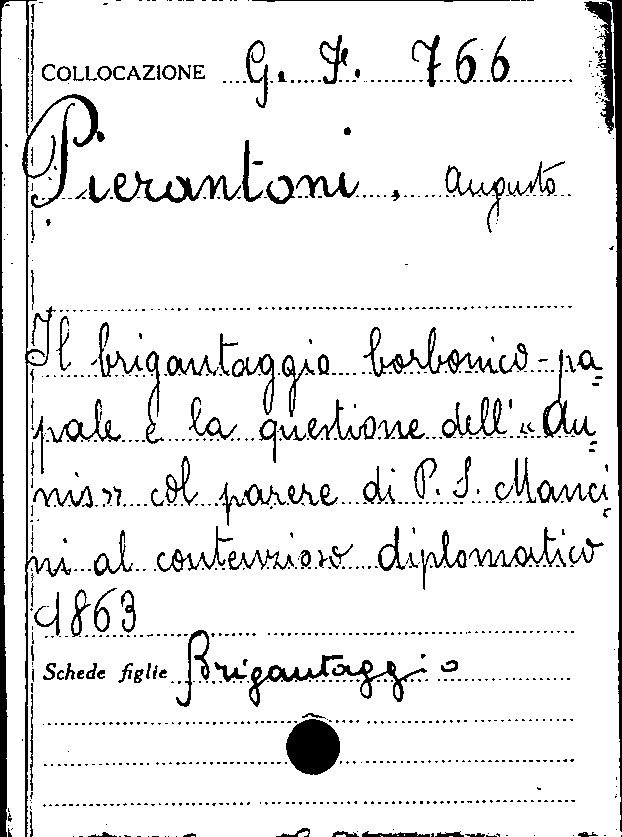 COLLOCAZIONE G. F. 766
Pierantoni, Augusto
Il brigantaggio borbonico-pa=
pale e la questione dell'«Au=
nis» col parere di P. S. Manci=
ni al contenzioso diplomatico
1863
Schede figlie Brigantaggio